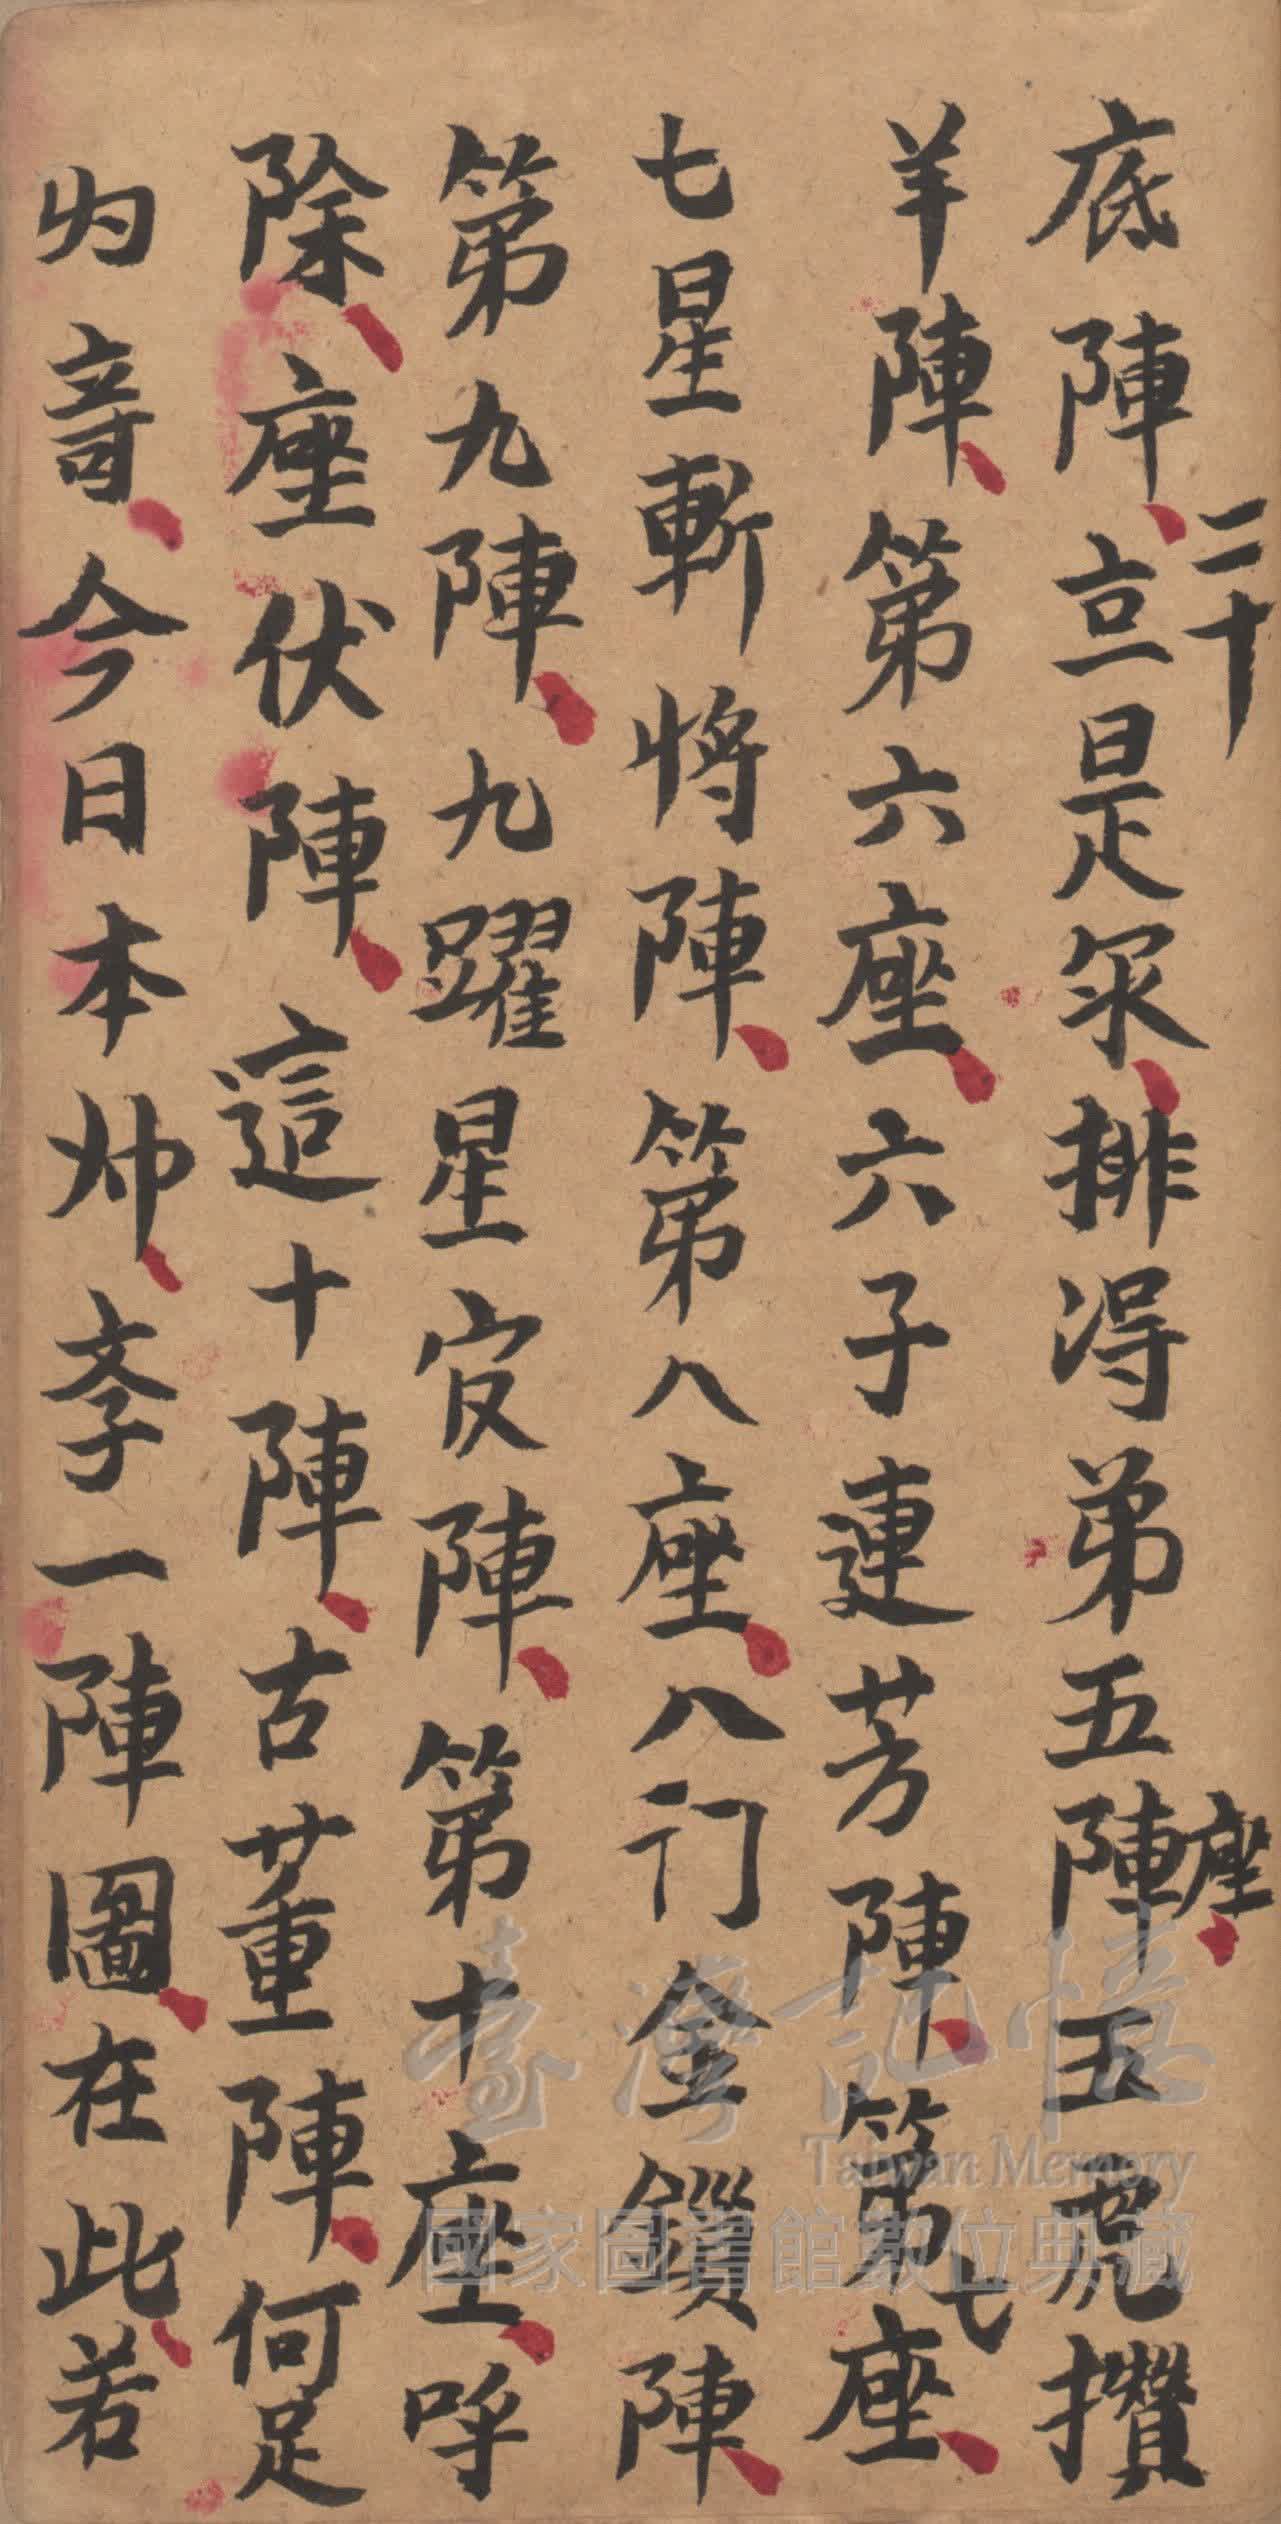 二十
底陣、亘是眾、排得弟五陣座、五虎攢
羊陣、第六座、六子連芳陣、第七座、
七星斬將陣、第八座、八门金鎖陣、
第九陣、九躍星官陣、第十座、呼
除、座伏陣、這十陣、古董陣、何足
为竒、今日本帅、李一陣圖、在此、若
臺灣記憶
Taiwan Memory
國家圖書館數位典藏